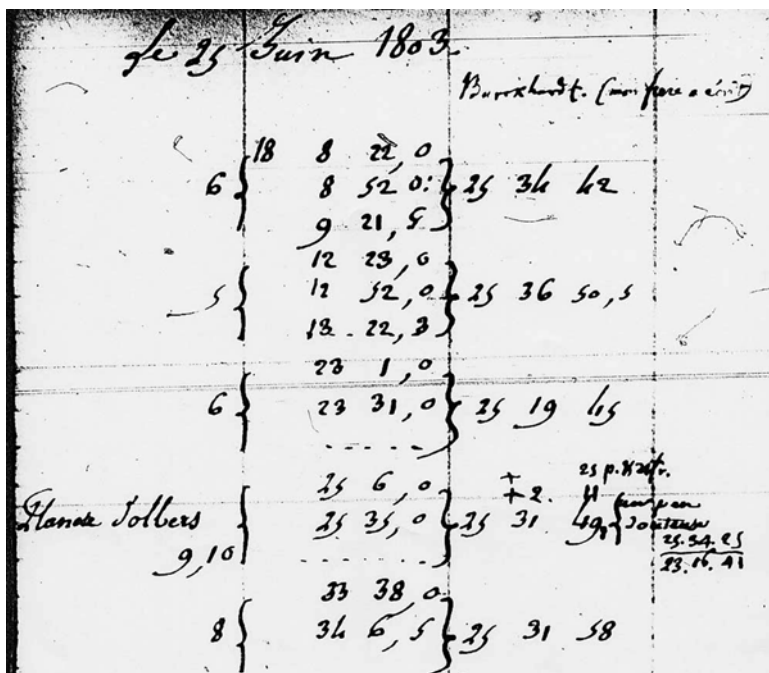 Le 25 Juin 1803.
Burckhardt. (mon frere a écrit)
18 8 22,0
6 8 52 0: 25 34 42
9 21,5
12 23,0
5 12 52,0 25 36 50,5
13 22,3
23 1,0
6 23 31,0 25 19 45
- - - - -
25 p.
25 6,0 + 2.
Planete d'olbers 25 35,0 25 31 49, un peu
douteuse
9,10 . . . . . . 25.34.25
23.16.41
33 38,0
8 34 6,5 25 31 58